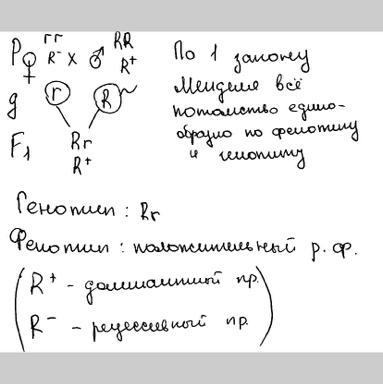 P ♀ rr R⁻ x ♂ RR R⁺
g r R
F₁ Rr R⁺
По 1 закону
Менделя всё
потомство едино-
образно по фенотипу
и генотипу
Генотип : Rr
Фенотип : положительный р. ф.
R⁺ - доминантный пр.
R⁻ - рецессивный пр.